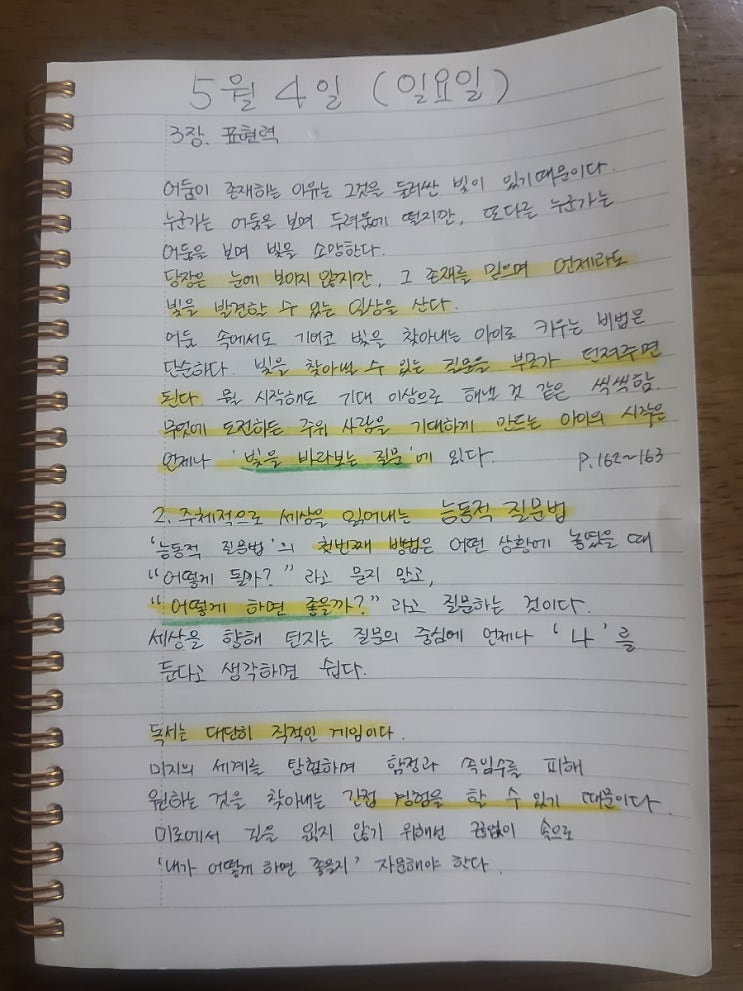 5월 4일 (일요일)
3장. 표현력
어둠이 존재하는 이유는 그것을 둘러싼 빛이 있기 때문이다.
누군가는 어둠을 보며 두려움에 떨지만, 또다른 누군가는
어둠을 보며 빛을 소망한다.
당장은 눈에 보이지 않지만, 그 존재를 믿으며 언제라도
빛을 발견할 수 있는 일상을 산다.
어둠 속에서도 기어코 빛을 찾아내는 아이로 키우는 비법은
단순하다. 빛을 찾아낼 수 있는 질문을 부모가 던져주면
된다. 뭘 시작해도 기대 이상으로 해낼 것 같은 씩씩함.
무엇에 도전하든 주위 사람을 기대하게 만드는 아이의 시작은
언제나 '빛을 바라보는 질문'에 있다. P.162~163
2. 주체적으로 세상을 읽어내는 능동적 질문법
'능동적 질문법'의 첫번째 방법은 어떤 상황에 놓였을 때
"어떻게 될까?" 라고 묻지 말고,
"어떻게 하면 좋을까?" 라고 질문하는 것이다.
세상을 향해 던지는 질문의 중심에 언제나 '나'를
둔다고 생각하면 쉽다.
독서는 대단히 지적인 게임이다.
미지의 세계를 탐험하며 함정과 속임수를 피해
원하는 것을 찾아내는 간접 경험을 할 수 있기 때문이다.
미로에서 길을 잃지 않기 위해선 끊없이 속으로
'내가 어떻게 하면 좋을지' 자문해야 한다.